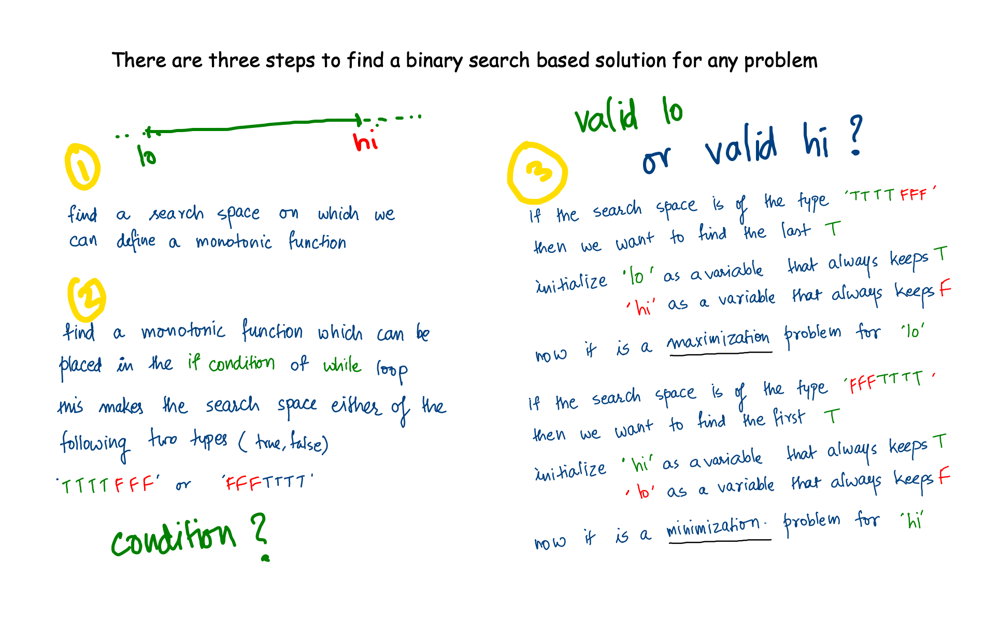 There are three steps to find a binary search based solution for any problem
lo
hi
1
find a search space on which we
can define a monotonic function
2
find a monotonic function which can be
placed in the if condition of while loop
this makes the search space either of the
following two types (true, false)
'TTTTFFF' or 'FFFTTTT'
condition?
valid lo
or valid hi?
3
if the search space is of the type 'TTTTFFF'
then we want to find the last T
initialize 'lo' as a variable that always keeps T
'hi' as a variable that always keeps F
now it is a maximization problem for 'lo'
if the search space is of the type 'FFFTTTT'
then we want to find the first T
initialize 'hi' as a variable that always keeps T
'lo' as a variable that always keeps F
now it is a minimization. problem for 'hi'